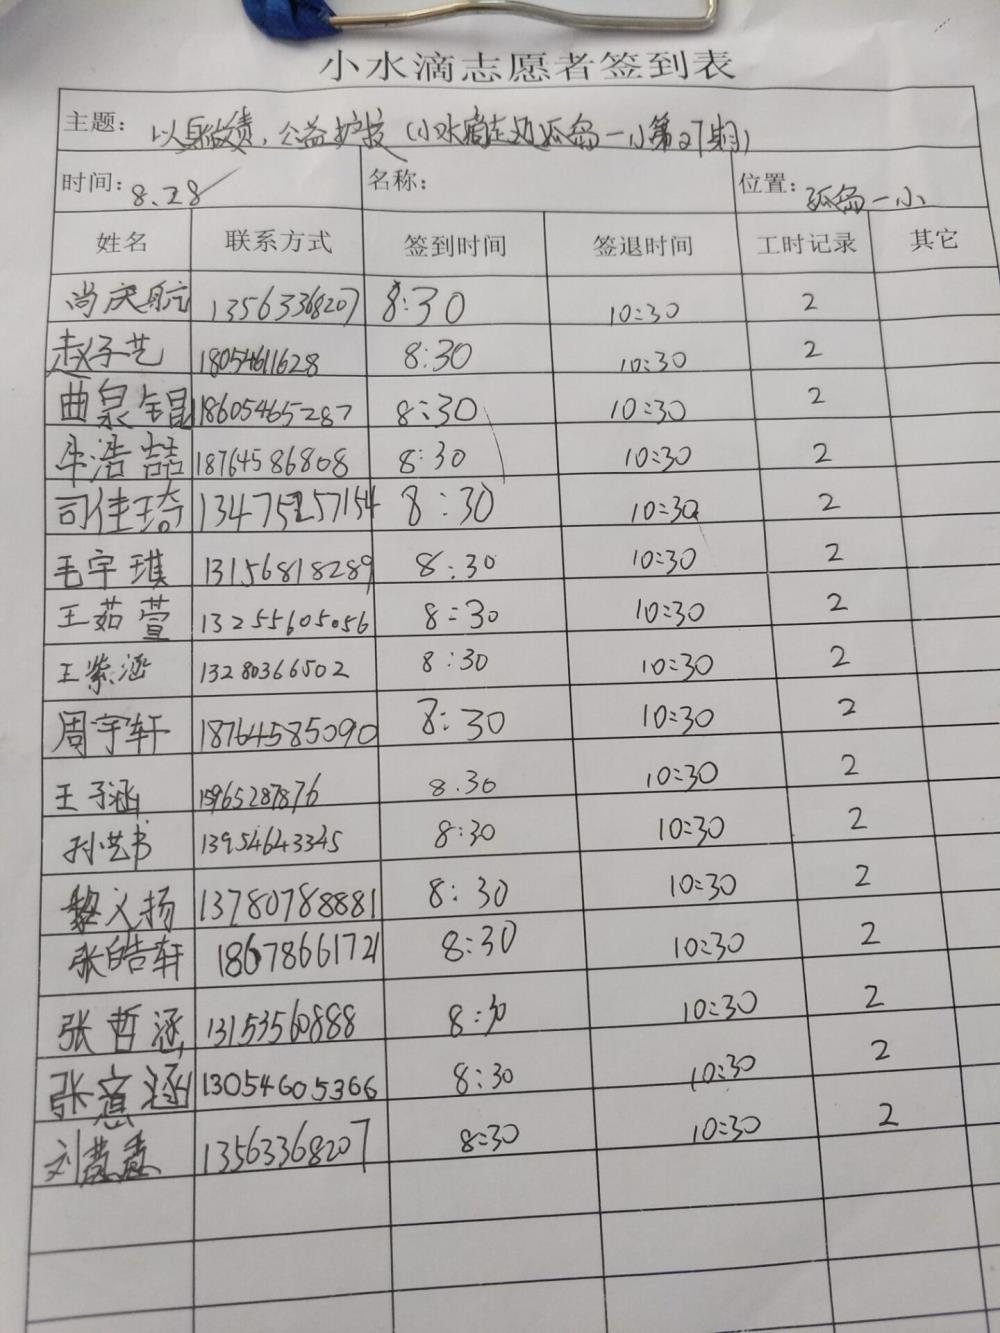 小水滴志愿者签到表
主题: 以身做责,公益护校(小水滴走进孤岛一小第27期)
时间: 8.28 名称: 位置: 孤岛一小
姓名 联系方式 签到时间 签退时间 工时记录 其它
尚庆航 13563368207 8:30 10:30 2
赵子艺 18054611628 8:30 10:30 2
曲泉锟 18605465287 8:30 10:30 2
牛浩喆 18764586808 8:30 10:30 2
司佳琦 13475257154 8:30 10:30 2
毛宇琪 13156818289 8:30 10:30 2
王茹萱 13255605056 8:30 10:30 2
王紫涵 13280366502 8:30 10:30 2
周宇轩 18764585090 8:30 10:30 2
王子涵 15965287876 8.30 10:30 2
孙艺书 13954643345 8:30 10:30 2
黎义扬 13780788881 8:30 10:30 2
张皓轩 18678661721 8:30 10:30 2
张哲涵 13153560888 8:30 10:30 2
张意涵 13054605366 8:30 10:30 2
刘慧 13563368207 8:30 10:30 2